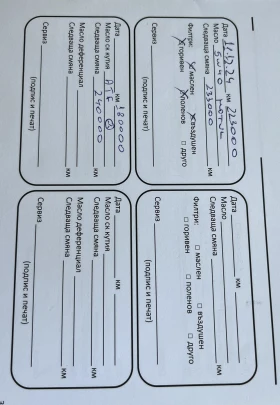 Дата 14.12.24 км 223000
Масло 5W40 MOTUL
Следваща смяна 233000 км
Филтри: маслен въздушен
горивен поленов друго
Сервиз
(подпис и печат)
Дата км 180000
Масло ск кутия ATF
Следваща смяна 240000
Масло деференциал
Следваща смяна км
Сервиз
(подпис и печат)
Дата км
Масло
Следваща смяна км
Филтри: □ маслен □ въздушен
□ горивен □ поленов □ друго
Сервиз
(подпис и печат)
Дата км
Масло ск кутия
Следваща смяна км
Масло деференциал
Следваща смяна км
Сервиз
(подпис и печат)